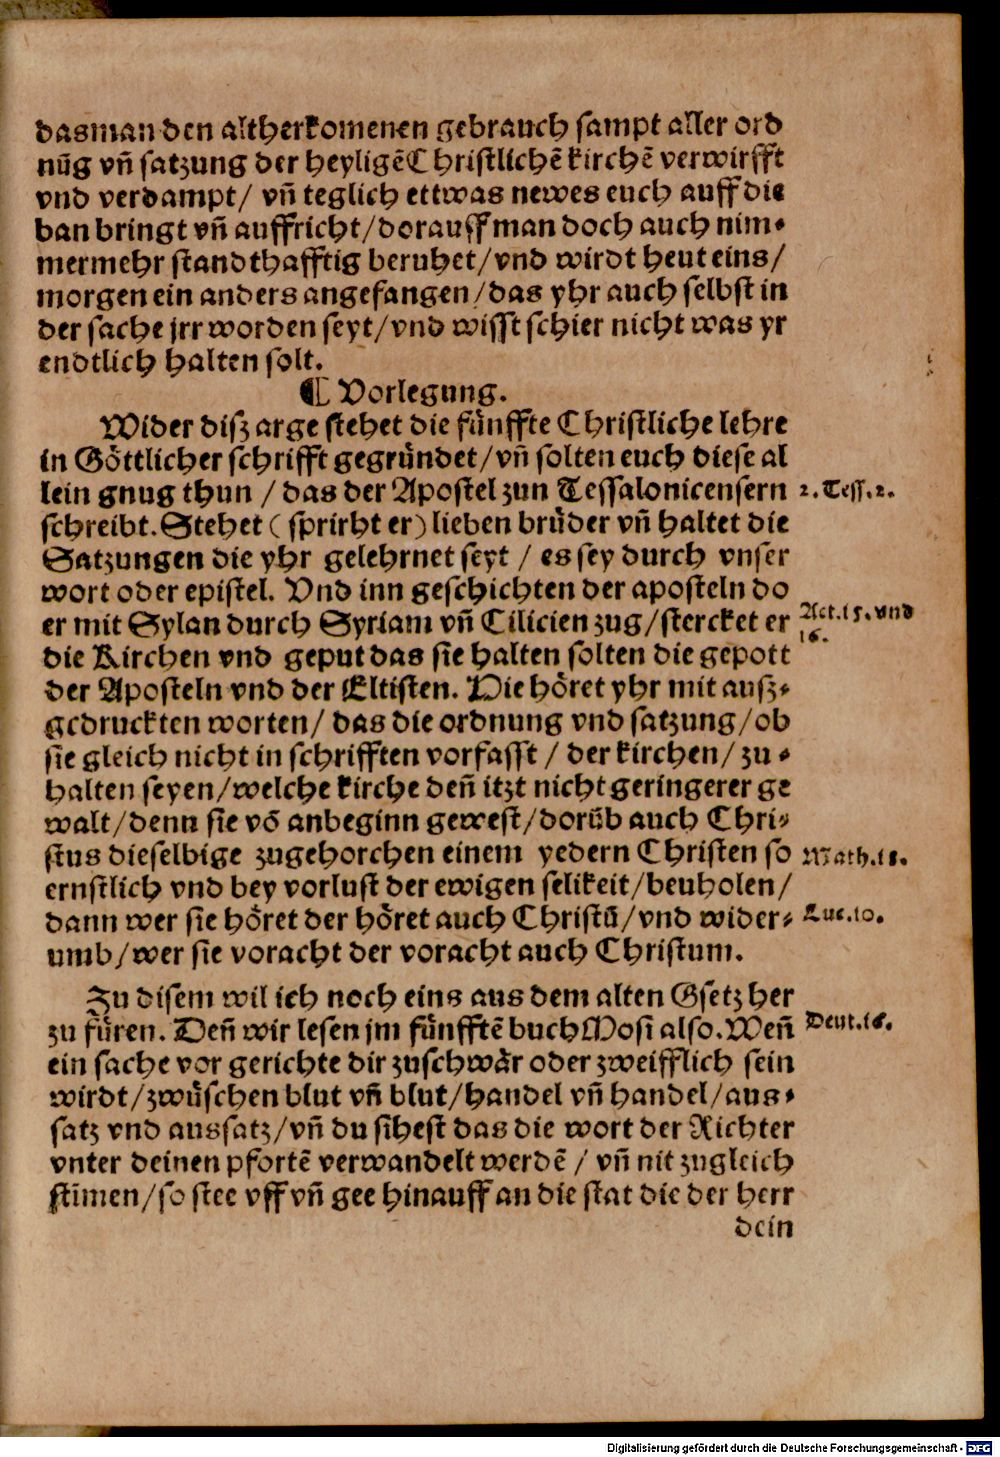 dasman den altherkomenen gebrauch sampt aller ord
nūg vñ satzung der heyligē Christlichē kirchē verwirfft
vnd verdampt/ vñ teglich ettwas newes euch auff die
ban bringt vñ auffricht/dorauff man doch auch nim-
mermehr standthafftig beruhet/vnd wirdt heut eins/
morgen ein anders angefangen/das yhr auch selbst in
der sache jrr worden seyt/vnd wisst schier nicht was yr
endtlich halten solt.
¶ Vorlegung.
Wider disz arge stehet die fünffte Christliche lehre
in Göttlicher schrifft gegründet/vñ solten euch diese al
lein gnug thun / das der Apostel zun Tessalonicensern
2. Tess. 2.
schreibt. Stehet ( sprirht er) lieben brüder vñ haltet die
Satzungen die yhr gelehrnet seyt / es sey durch vnser
wort oder epistel. Vnd inn geschichten der aposteln do
er mit Sylan durch Syriam vñ Cilicien zug/stercket er
Act. 15. vnd
16.
die Kirchen vnd geput das sie halten solten die gepott
der Aposteln vnd der Eltisten. Hie höret yhr mit ausz-
gedruckten worten/ das die ordnung vnd satzung/ob
sie gleich nicht in schrifften vorfasst / der kirchen/ zu-
halten seyen/welche kirche deñ itzt nicht geringerer ge
walt/denn sie vō anbeginn gewest/dorūb auch Chri-
stus dieselbige zugehorchen einem yedern Christen so
Math. 18.
ernstlich vnd bey vorlust der ewigen selikeit/beuholen/
dann wer sie höret der höret auch Christū/vnd wider-
Luc. 10.
umb/wer sie voracht der voracht auch Christum.
Zu disem wil ich noch eins aus dem alten Gsetz her
zu füren. Deñ wir lesen jm fünfftē buch Mosi also. Weñ
Deut. 16.
ein sache vor gerichte dir zuschwär oder zweifflich sein
wirdt/zwüschen blut vñ blut/handel vñ handel/aus-
satz vnd aussatz/vñ du sihest das die wort der Richter
vnter deinen pfortē verwandelt werdē / vñ nit zugleich
stimen/so stee vff vñ gee hinauff an die stat die der herr
dein
Digitalisierung gefördert durch die Deutsche Forschungsgemeinschaft - DFG